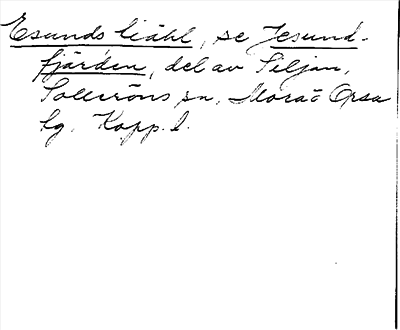 Esunds Siähl, se Jesund-
fjärden, del av Siljan,
Solleröns sn, Mora o Orsa
tg. Kopp. l.